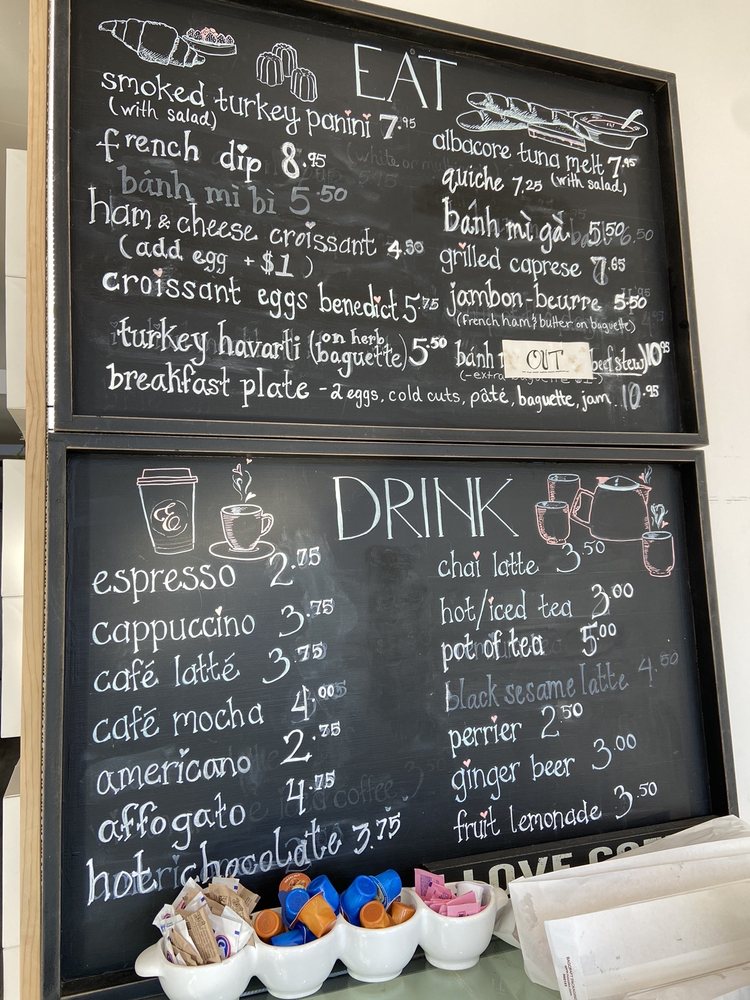 EAT
smoked turkey panini 7.95
(with salad)
french dip 8.95
bánh mì bì 5.50
ham & cheese croissant 4.50
(add egg + $1)
croissant eggs benedict 5.75
turkey havarti (on herb baguette) 5.50
breakfast plate - 2 eggs, cold cuts, pâté, baguette, jam 10.95
albacore tuna melt 7.95
quiche 7.25 (with salad)
bánh mì gà 5.50
grilled caprese 7.65
jambon-beurre 5.50
(french ham & butter on baguette)
bánh OUT beef stew) 10.95
DRINK
espresso 2.75
cappuccino 3.75
café latté 3.75
café mocha 4.00
americano 2.75
affogato 4.75
hot chocolate 3.75
chai latte 3.50
hot/iced tea 3.00
pot of tea 5.00
black sesame latte 4.50
perrier 2.50
ginger beer 3.00
fruit lemonade 3.50
LOVE